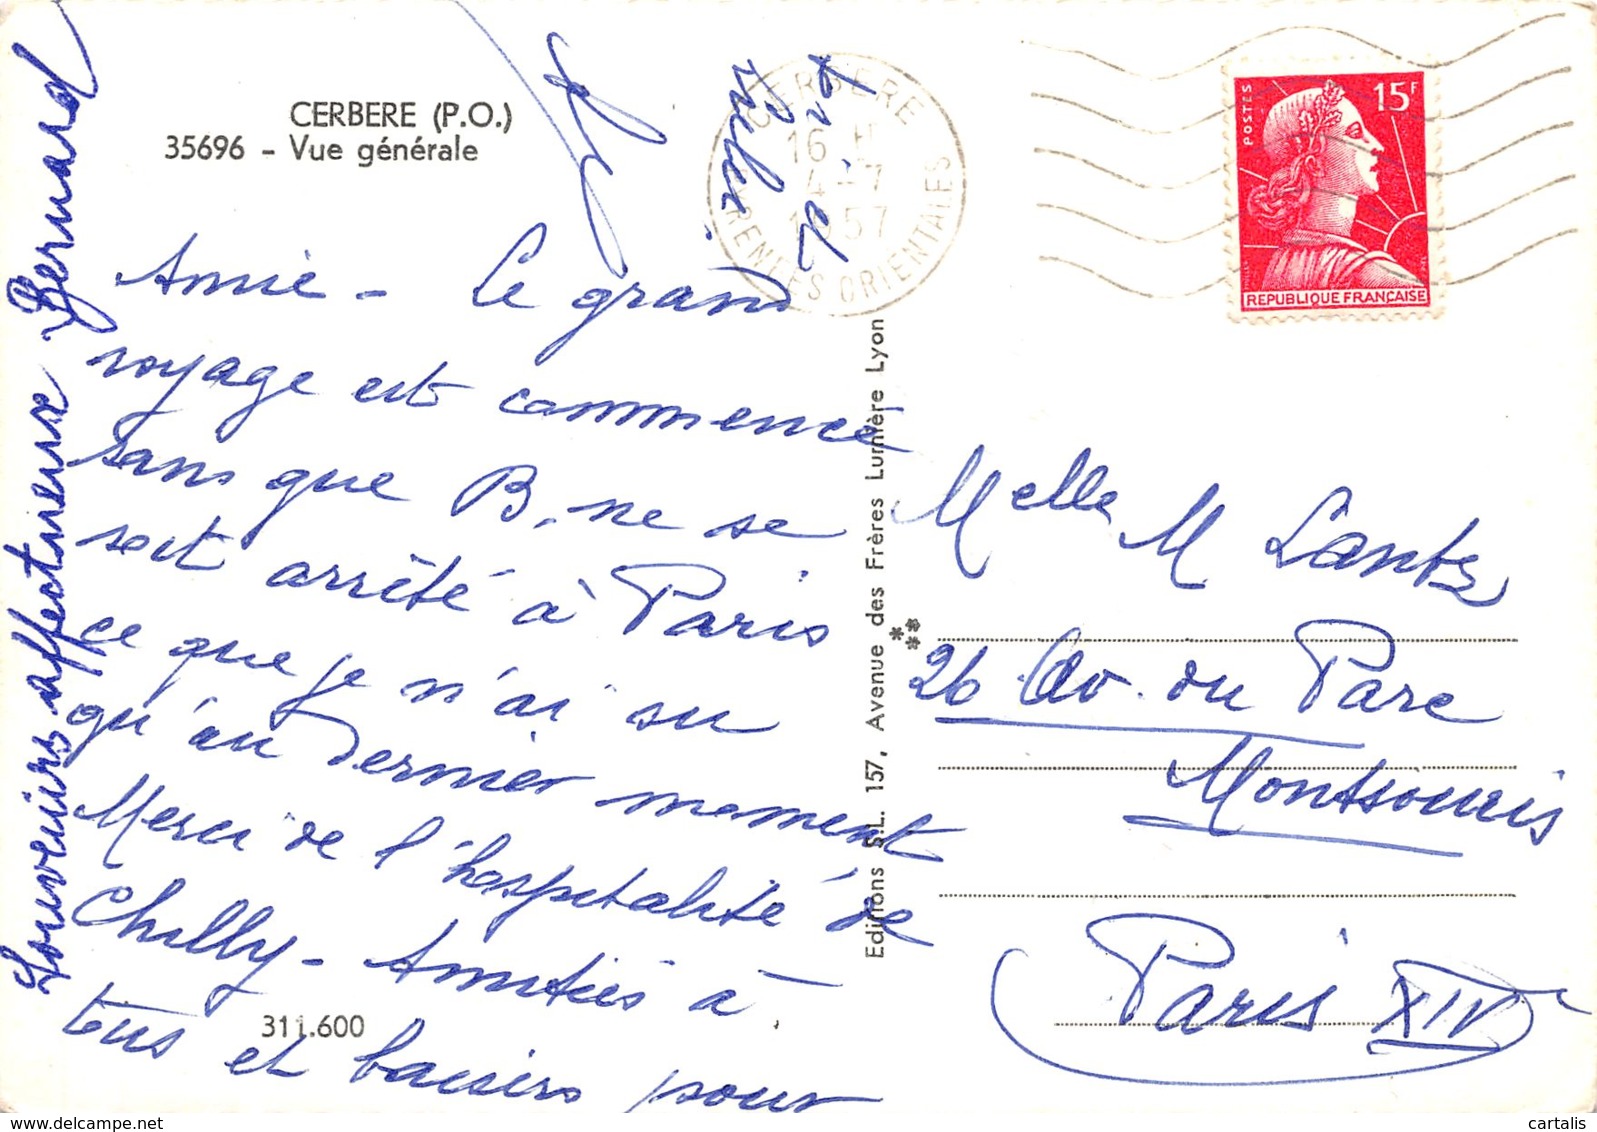 CERBERE (P.O.)
35696 - Vue générale
Annie - Le grand
voyage est commencé
sans que B. ne se
soit arrêté à Paris
ce que je n'ai su
qu'au dernier moment
Merci de l'hospitalité de
Chilly - Amitiés à
tous et baisers pour
toi et
Souvenirs affectueux Bernard
311.600
Editions S.L. 157, Avenue des Frères Lumière Lyon
CERBERE
16 H
4 - 7
1957
PYRENEES ORIENTALES
POSTES
15F
REPUBLIQUE FRANÇAISE
Melle M Lantz
26 Av. du Parc
Montsouris
Paris XIVe
cartalis